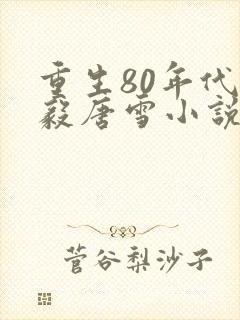 重生80年代
毅唐雪小説
菅谷梨沙子